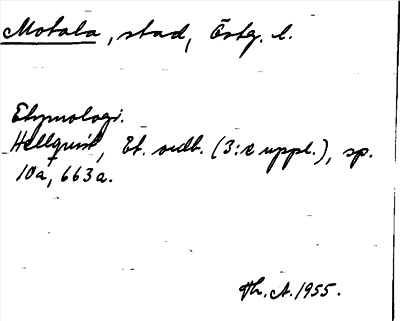 Motala, stad, Östg. l.
Etymologi.
Hellquist, Et. ordb. (3:e uppl.), sp.
10a, 663a.
Th. A. 1955.